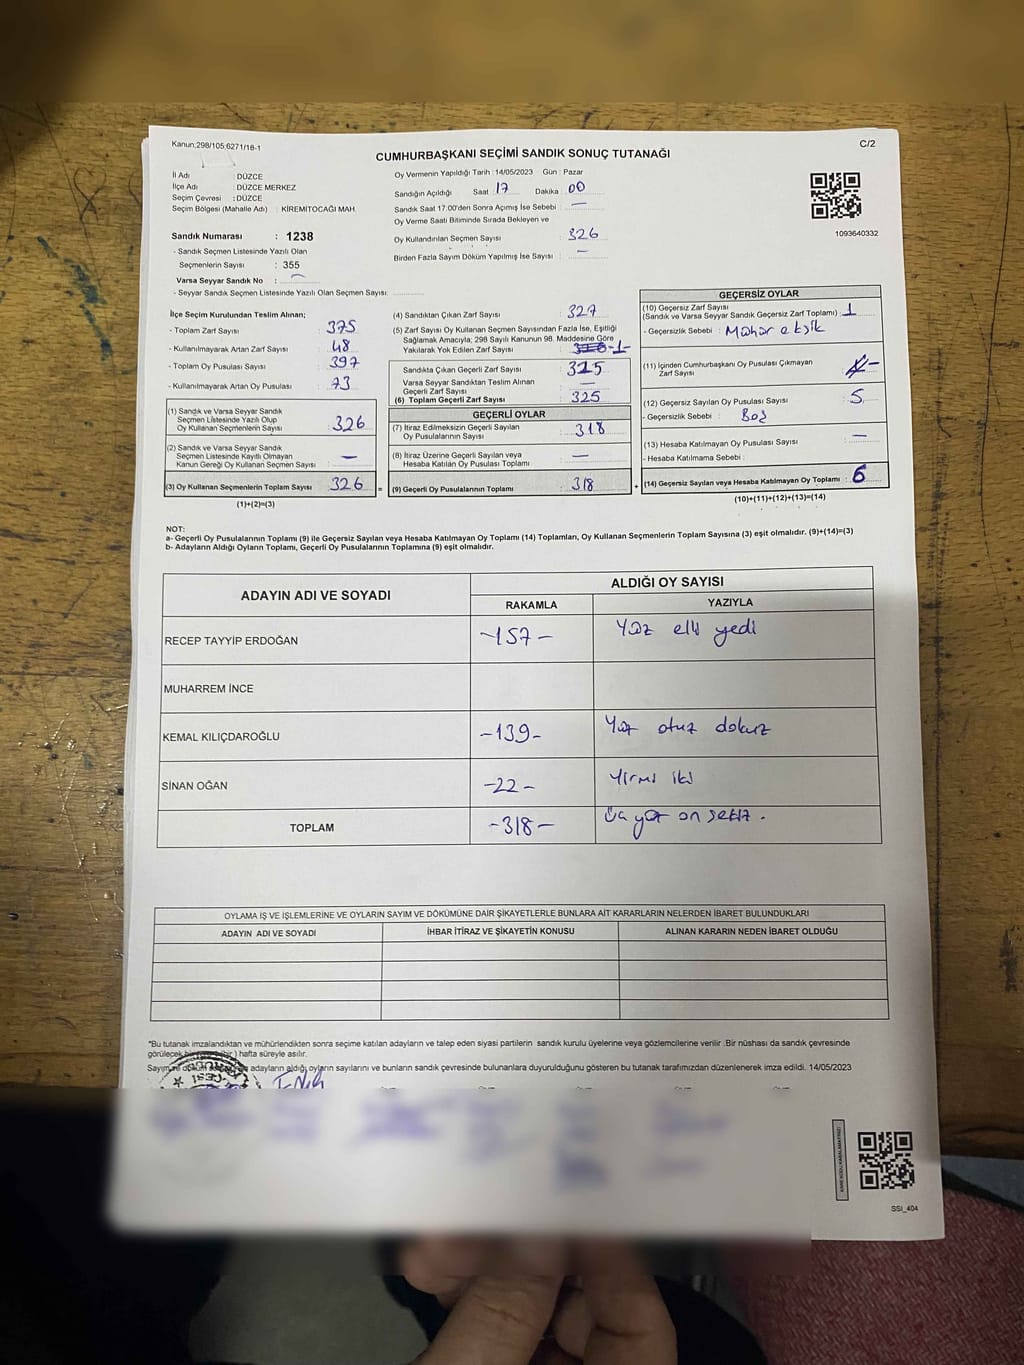 Kanun;298/105;6271/16-1
C/2
CUMHURBAŞKANI SEÇİMİ SANDIK SONUÇ TUTANAĞI
İl Adı : DÜZCE
İlçe Adı : DÜZCE MERKEZ
Seçim Çevresi : DÜZCE
Seçim Bölgesi (Mahalle Adı) : KİREMİTOCAĞI MAH.
Sandık Numarası : 1238
- Sandık Seçmen Listesinde Yazılı Olan
Seçmenlerin Sayısı : 355
Varsa Seyyar Sandık No : —
- Seyyar Sandık Seçmen Listesinde Yazılı Olan Seçmen Sayısı:
Oy Vermenin Yapıldığı Tarih : 14/05/2023 Gün : Pazar
Sandığın Açıldığı Saat 17 Dakika 00
Sandık Saat 17:00'den Sonra Açımış İse Sebebi : —
Oy Verme Saati Bitiminde Sırada Bekleyen ve
Oy Kullandırılan Seçmen Sayısı : 326
Birden Fazla Sayım Döküm Yapılmış İse Sayısı : —
1093640332
İlçe Seçim Kurulundan Teslim Alınan;
- Toplam Zarf Sayısı : 375
- Kullanılmayarak Artan Zarf Sayısı : 48
- Toplam Oy Pusulası Sayısı : 397
- Kullanılmayarak Artan Oy Pusulası : 73
(1) Sandık ve Varsa Seyyar Sandık
Seçmen Listesinde Yazılı Olup
Oy Kullanan Seçmenlerin Sayısı : 326
(2) Sandık ve Varsa Seyyar Sandık
Seçmen Listesinde Kayıtlı Olmayan
Kanun Gereği Oy Kullanan Seçmen Sayısı : —
(3) Oy Kullanan Seçmenlerin Toplam Sayısı : 326 =
(1)+(2)=(3)
(4) Sandıktan Çıkan Zarf Sayısı : 327
(5) Zarf Sayısı Oy Kullanan Seçmen Sayısından Fazla İse, Eşitliği
Sağlamak Amacıyla; 298 Sayılı Kanunun 98. Maddesine Göre
Yakılarak Yok Edilen Zarf Sayısı : -1-
Sandıkta Çıkan Geçerli Zarf Sayısı : 325
Varsa Seyyar Sandıktan Teslim Alınan
Geçerli Zarf Sayısı : —
(6) Toplam Geçerli Zarf Sayısı : 325
GEÇERLİ OYLAR
(7) İtiraz Edilmeksizin Geçerli Sayılan
Oy Pusulalarının Sayısı : 318
(8) İtiraz Üzerine Geçerli Sayılan veya
Hesaba Katılan Oy Pusulası Toplamı : —
(9) Geçerli Oy Pusulalarının Toplamı : 318 +
GEÇERSİZ OYLAR
(10) Geçersiz Zarf Sayısı
(Sandık ve Varsa Seyyar Sandık Geçersiz Zarf Toplamı) : 1
- Geçersizlik Sebebi : Mühür eksik
(11) İçinden Cumhurbaşkanı Oy Pusulası Çıkmayan
Zarf Sayısı :
(12) Geçersiz Sayılan Oy Pusulası Sayısı : 5
- Geçersizlik Sebebi : Boş
(13) Hesaba Katılmayan Oy Pusulası Sayısı : —
- Hesaba Katılmama Sebebi :
(14) Geçersiz Sayılan veya Hesaba Katılmayan Oy Toplamı : 6
(10)+(11)+(12)+(13)=(14)
NOT:
a- Geçerli Oy Pusulalarının Toplamı (9) ile Geçersiz Sayılan veya Hesaba Katılmayan Oy Toplamı (14) Toplamları, Oy Kullanan Seçmenlerin Toplam Sayısına (3) eşit olmalıdır. (9)+(14)=(3)
b- Adayların Aldığı Oyların Toplamı, Geçerli Oy Pusulalarının Toplamına (9) eşit olmalıdır.
ADAYIN ADI VE SOYADI
ALDIĞI OY SAYISI
RAKAMLA YAZIYLA
RECEP TAYYİP ERDOĞAN -157- Yüz elli yedi
MUHARREM İNCE
KEMAL KILIÇDAROĞLU -139- Yüz otuz dokuz
SİNAN OĞAN -22- Yirmi iki
TOPLAM -318- Üç yüz on sekiz.
OYLAMA İŞ VE İŞLEMLERİNE VE OYLARIN SAYIM VE DÖKÜMÜNE DAİR ŞİKAYETLERLE BUNLARA AİT KARARLARIN NELERDEN İBARET BULUNDUKLARI
ADAYIN ADI VE SOYADI İHBAR İTİRAZ VE ŞİKAYETİN KONUSU ALINAN KARARIN NEDEN İBARET OLDUĞU
"Bu tutanak imzalandıktan ve mühürlendikten sonra seçime katılan adayların ve talep eden siyasi partilerin sandık kurulu üyelerine veya gözlemcilerine verilir .Bir nüshası da sandık çevresinde
görülecek ) hafta süreyle asılır.
adayların aldığı oyların sayılarını ve bunların sandık çevresinde bulunanlara duyurulduğunu gösteren bu tutanak tarafımızdan düzenlenerek imza edildi. 14/05/2023
SSI_404